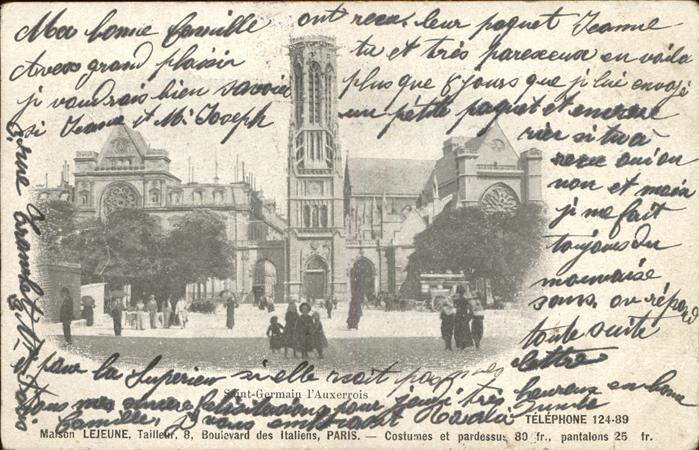 Ma bonne famille
Avec grand plaisir
je voudrais bien savoir
si Jeanne et Mr Joseph
ont recus leur paquet Jeanne
tu et très parexeux en voila
plus que 8 jours que je lui envojé
un petite paquet et encore
rien si tu à
recue oui on
non et main
je me fait
toujours du
mauvaise
sans, ou répond
toute suite
lettre
et pour la Superieur si elle
tous mes sincère pour très heureux en
famille, je vous embrassent
Saint-Germain l'Auxerrois
TÉLÉPHONE 124-89
Maison LEJEUNE, Tailleur, 8, Boulevard des Italiens, PARIS. — Costumes et pardessus 80 fr., pantalons 25 fr.